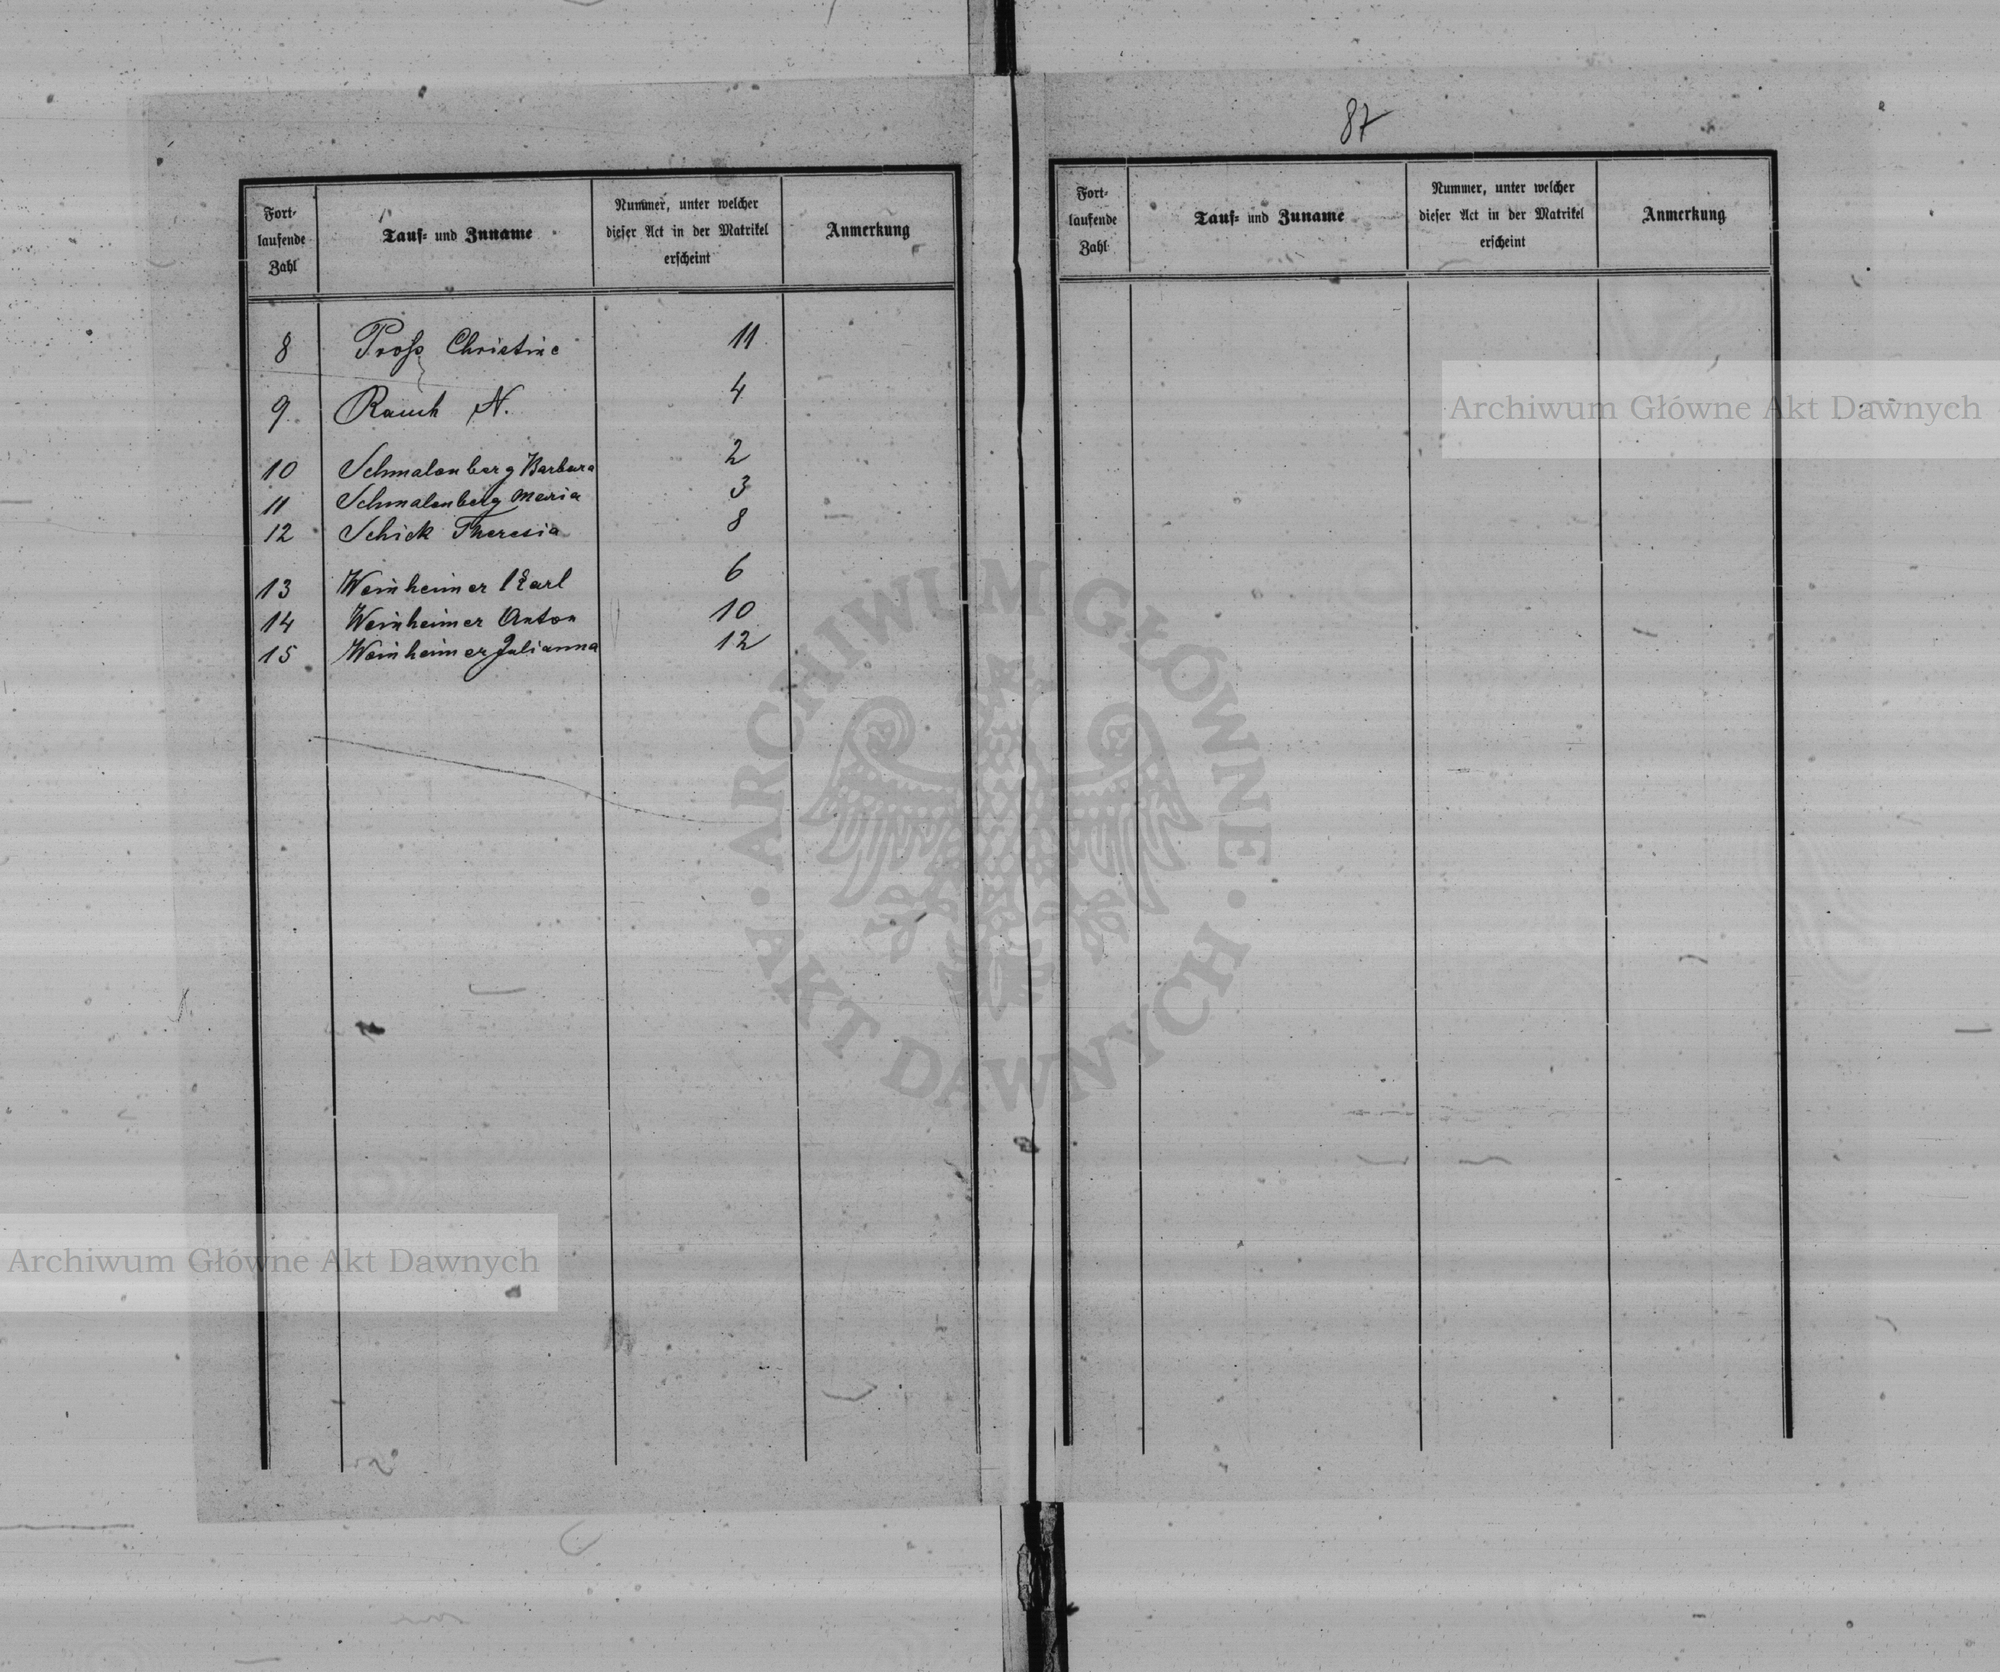 Fort-
laufende
Zahl
Tauf- und Zuname
Nummer, unter welcher
dieser Act in der Matrikel
erscheint
Anmerkung
8 Proß Christine 11
9. Rauch N. 4
10 Schmalenberg Barbara 2
11 Schmalenberg Maria 3
12 Schick Theresia 8
13 Weinheimer Karl 6
14 Weinheimer Anton 10
15 Weinheimer Julianna 12
87
Fort-
laufende
Zahl
Tauf- und Zuname
Nummer, unter welcher
dieser Act in der Matrikel
erscheint
Anmerkung
Archiwum Główne Akt Dawnych
ARCHIWUM GŁÓWNE
AKT DAWNYCH
Archiwum Główne Akt Dawnych